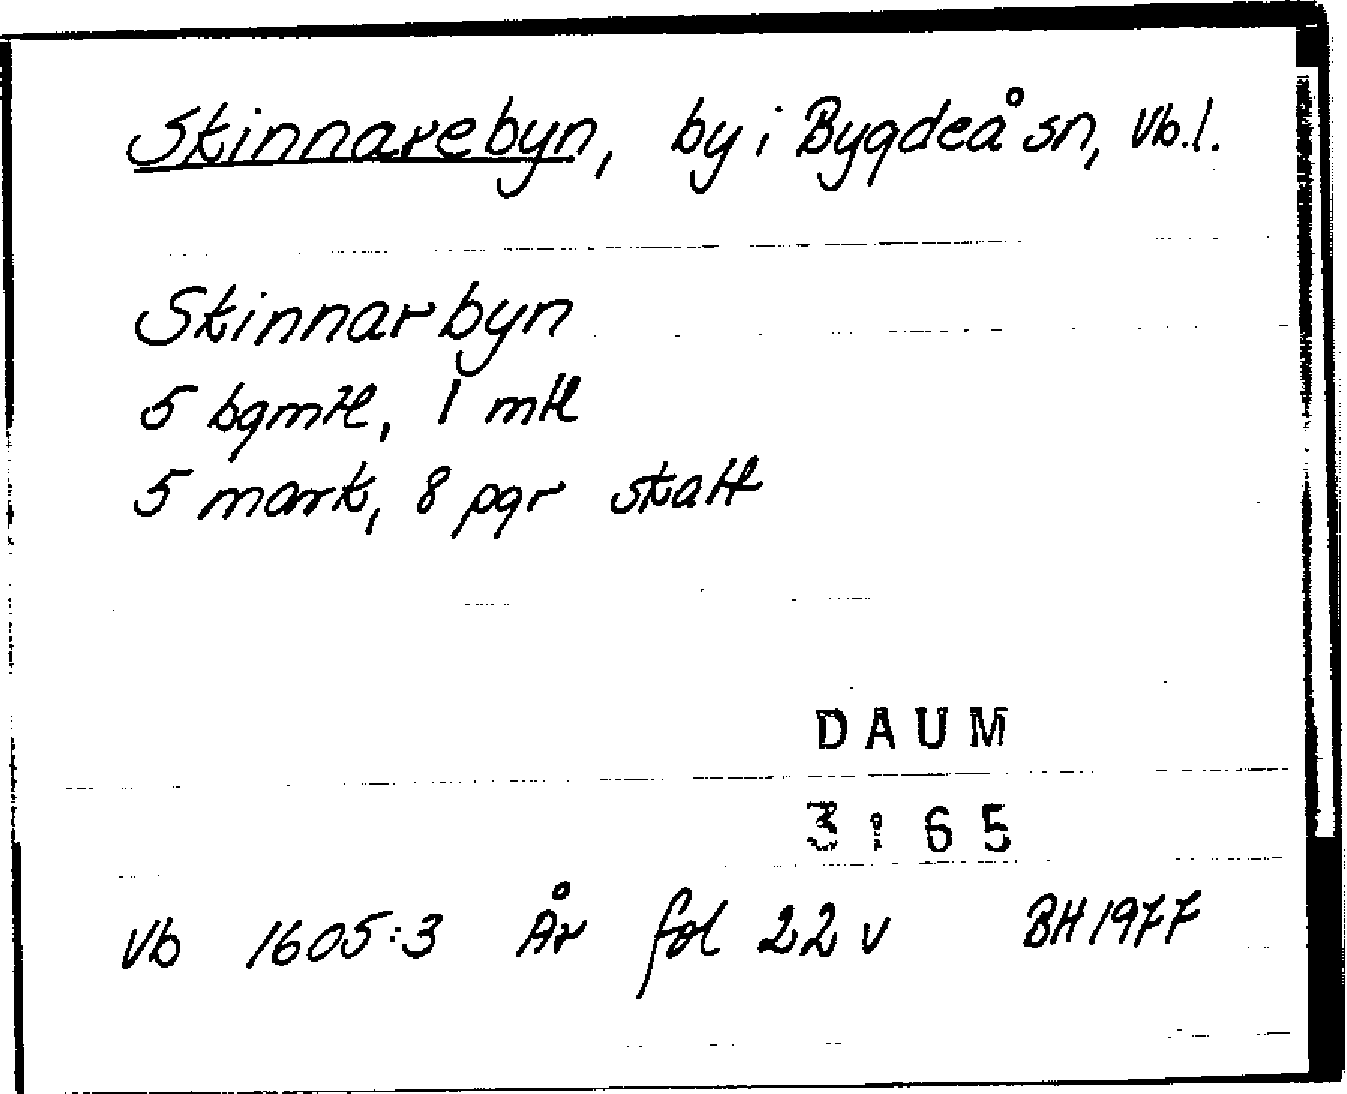 Skinnarebyn, by i Bygdeå sn, Vb.l.
Skinnarbyn
5 bgmtl, 1 mtl
5 mark, 8 pgr skatt
DAUM
3:65
Vb 1605:3 År fol 22 v BH 1977